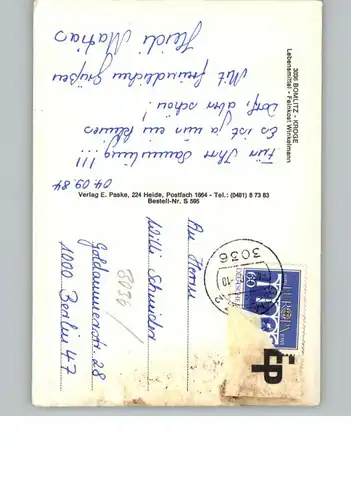 3036 BOMLITZ - KROGE
Lebensmittel - Feinkost Winkelmann
04.09.84
Für Ihr Sammlung!!!
Es ist ja nur ein kleines
Dorf, aber schön!
Mit freundlichen Grüßen
Heidi Matias
Verlag E. Paske, 224 Heide, Postfach 1864 - Tel.: (0481) 8 73 83
Bestell-Nr. S 595
3036
EUROPA
60
An Herrn
Willi Schneider
Goldammerstr. 28
1000 Berlin 47
3036
EP